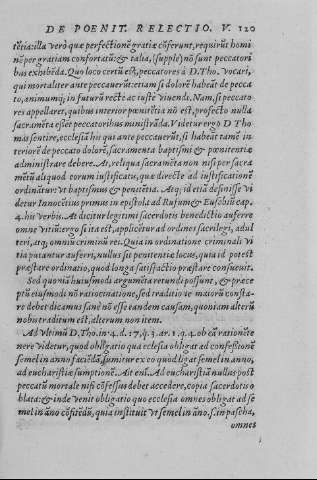 DE POENIT. RELECTIO. V. 120
tēria: illa verò quæ perfectionē gratiæ cōferunt, reqsirūt homi
nē per gratiam confortatū: & talia, (supple) nō sunt peccatori
bus exhibēda. Quo loco certū est, peccatores à D. Tho. vocari,
qui mortaliter ante peccauerūt: etiam si dolorē habeāt de pecca
to, animumq; in futurū recte ac iuste viuendi. Nam, si peccato
res appellaret, quibus interior pœnitētia nō est, profecto nulla
sacramēta essēt peccatoribus ministrāda. Videtur ergo D Tho
mas sentire, ecclesiā his qui ante peccauerūt, si habeāt tamē in
teriorē de peccato dolorē, sacramenta baptismi & pœnitentiæ
administrare debere. At, reliqua sacramēta non nisi per sacra
mētū aliquod eorum iustificatis, quæ directe ad iustificationē
ordinātur: vt baptismus & penitētia. Atq; id etiā definisse vi
detur Innocetius primus in epistola ad Rufum & Eusebiū cap.
4. his verbis. At dicitur legitimi sacerdotis benedictio auferre
omne vitiū: ergo si ita est, applicētur ad ordines sacrilegi, adul
teri, atq; omniū criminū rei. Quia in ordinatione criminali vi
tia putantur auferri, nullus sit penitentiæ locus, quia id potest
præstare ordinatio, quod longa satisfactio præstare consueuit.
Sed quoniā huiusmodi argumēta retundi possunt, & præce
ptū eiusmodi nō ratiocinatione, sed traditiōe maiorū consta-
re debet dicamus sanè nō esse eandem causam, quoniam alterū
nobis traditum est, alterum non item.
Ad vltimū D. Tho. in. 4. d. 17. q. 3. ar. 1. q. 4. ob eā rationē te
nere videtur, quod obligatio qua ecclesia obligat ad confessionē
semel in anno faciēdā, sumitur ex eo quod ligat semel in anno,
ad eucharistiæ sumptionē. Ait enī. Ad eucharistiā nullus post
peccatū mortale nisi cōfessus debet accedere, copia sacerdotis o
blata: & inde venit obligatio quo ecclesia omnes obligat ad se
mel in āno cōfitēdū, quia instituit vt semel in āno. s. in pascha,
omnes